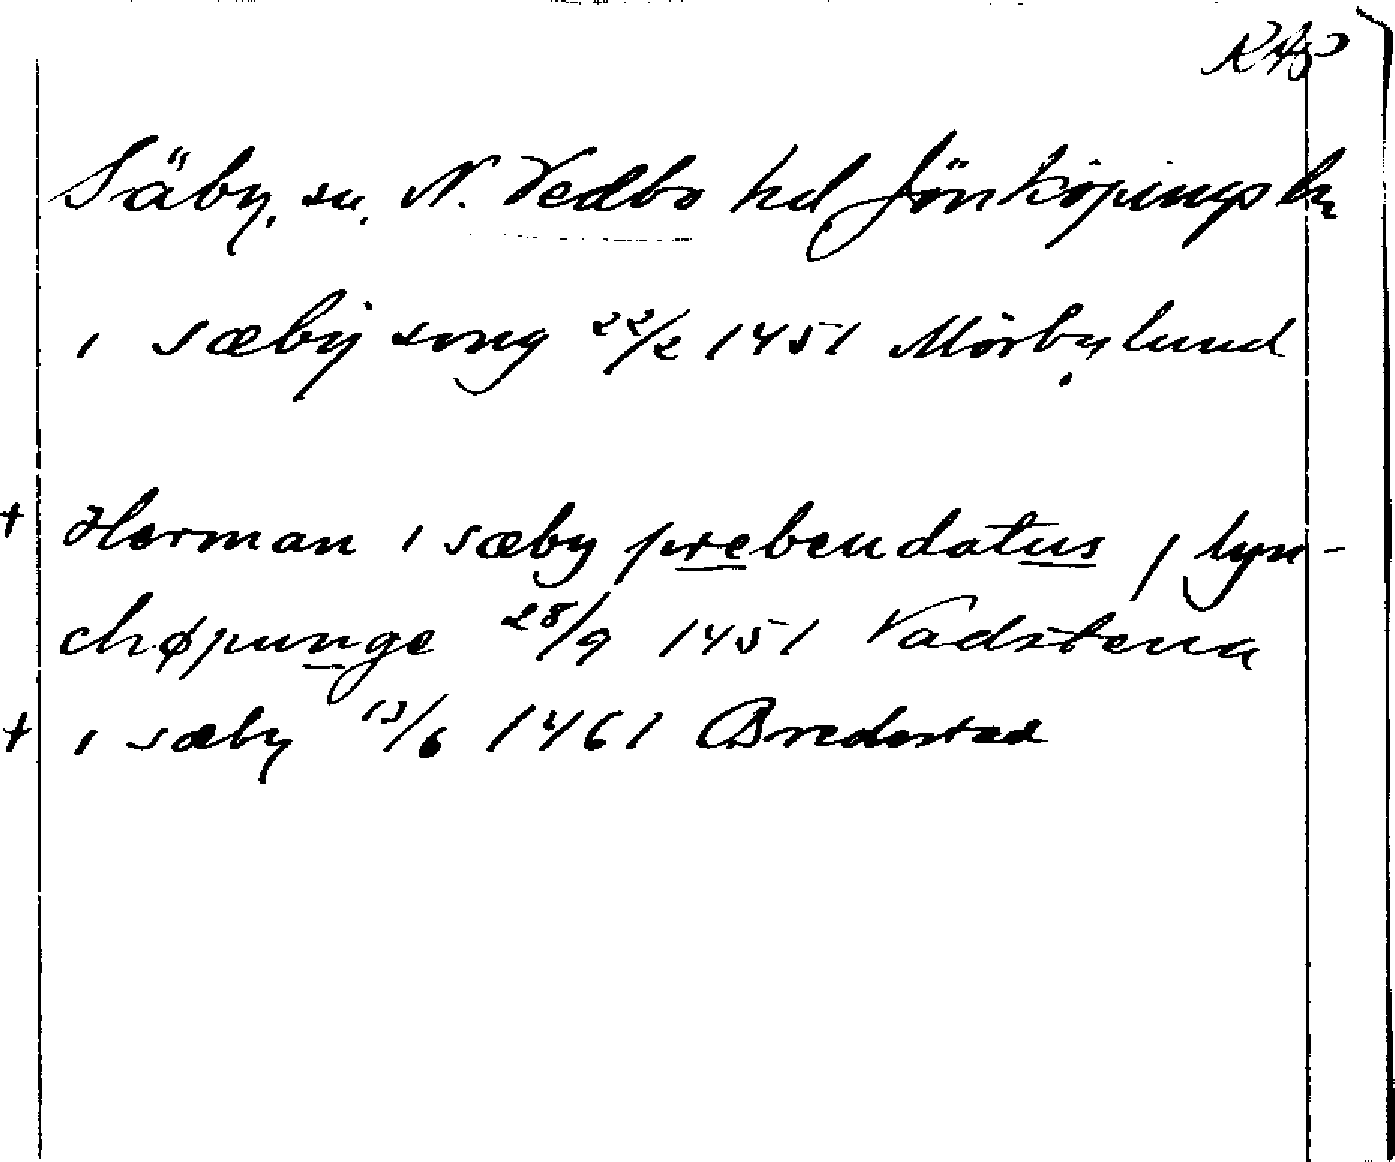 RAP
Säby, sn, N. Vedbo hd Jönköpings ln
i sæbÿ song 22/2 1451 Mörbylund
+ Herman i sæby prebendatus j lyn-
chøpunge 28/9 1451 Vadstena
+ i sæby 13/6 1461 Bredestad